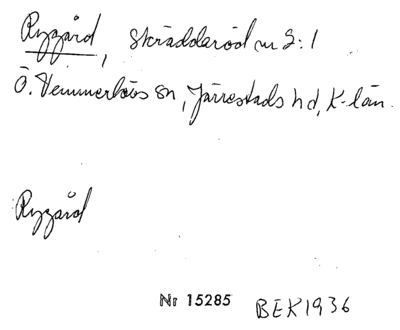 Ryggård, Skräddaröd nr 2:1
Ö. Vemmerlövs sn, Järrestads hd, K-län.
Ryggård
Nr 15285 BEK1936